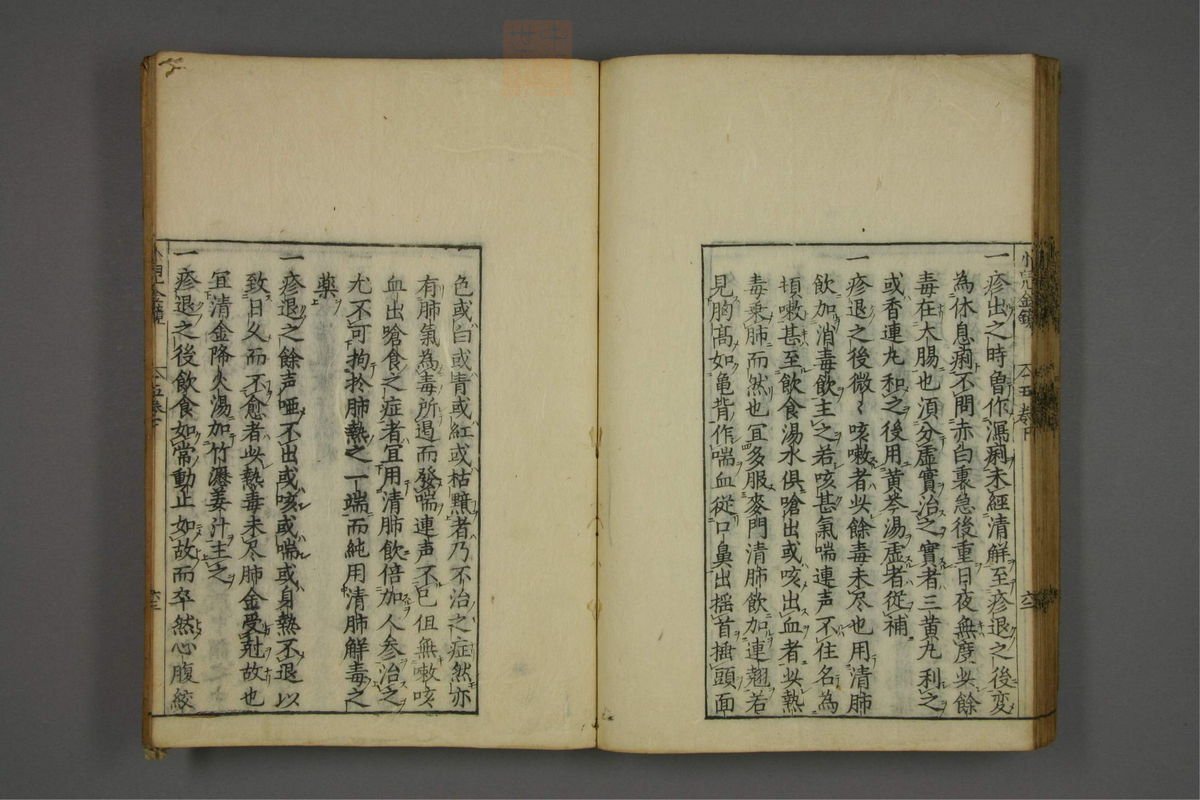 一疹出之時曽作瀉痢未經清解至疹退之後変
為休息痢不問赤白裏急後重日夜無度此餘
毒在大腸也湏分虚實治之實者三黄丸利之
或香連丸和之後用黄芩湯虚者從補
一疹退之後微〻咳嗽者此餘毒未尽也用清肺
飲加消毒飲主之若咳甚氣喘連声不住名為
頓嗽甚至飲食湯水俱嗆出或咳出血者此熱
毒乗肺而然也冝多服麥門清肺飲加連翹若
見胸髙如亀背作喘血従口鼻出揺首揺頭面
色或白或青或紅或枯黯者乃不治之症然亦
有肺氣為毒所遏而發喘連声不巳但無嗽咳
血出嗆食之症者冝用清肺飲倍加人参治之
尤不可拘扵肺熱之一端而純用清肺解毒之
藥
一疹退之餘声啞不出或咳或喘或身熱不退以
致日久而不愈者此熱毒未尽肺金受尅故也
冝清金降火湯加竹瀝姜汁主之
一疹退之後飲食如常動止如故而卒然心腹絞